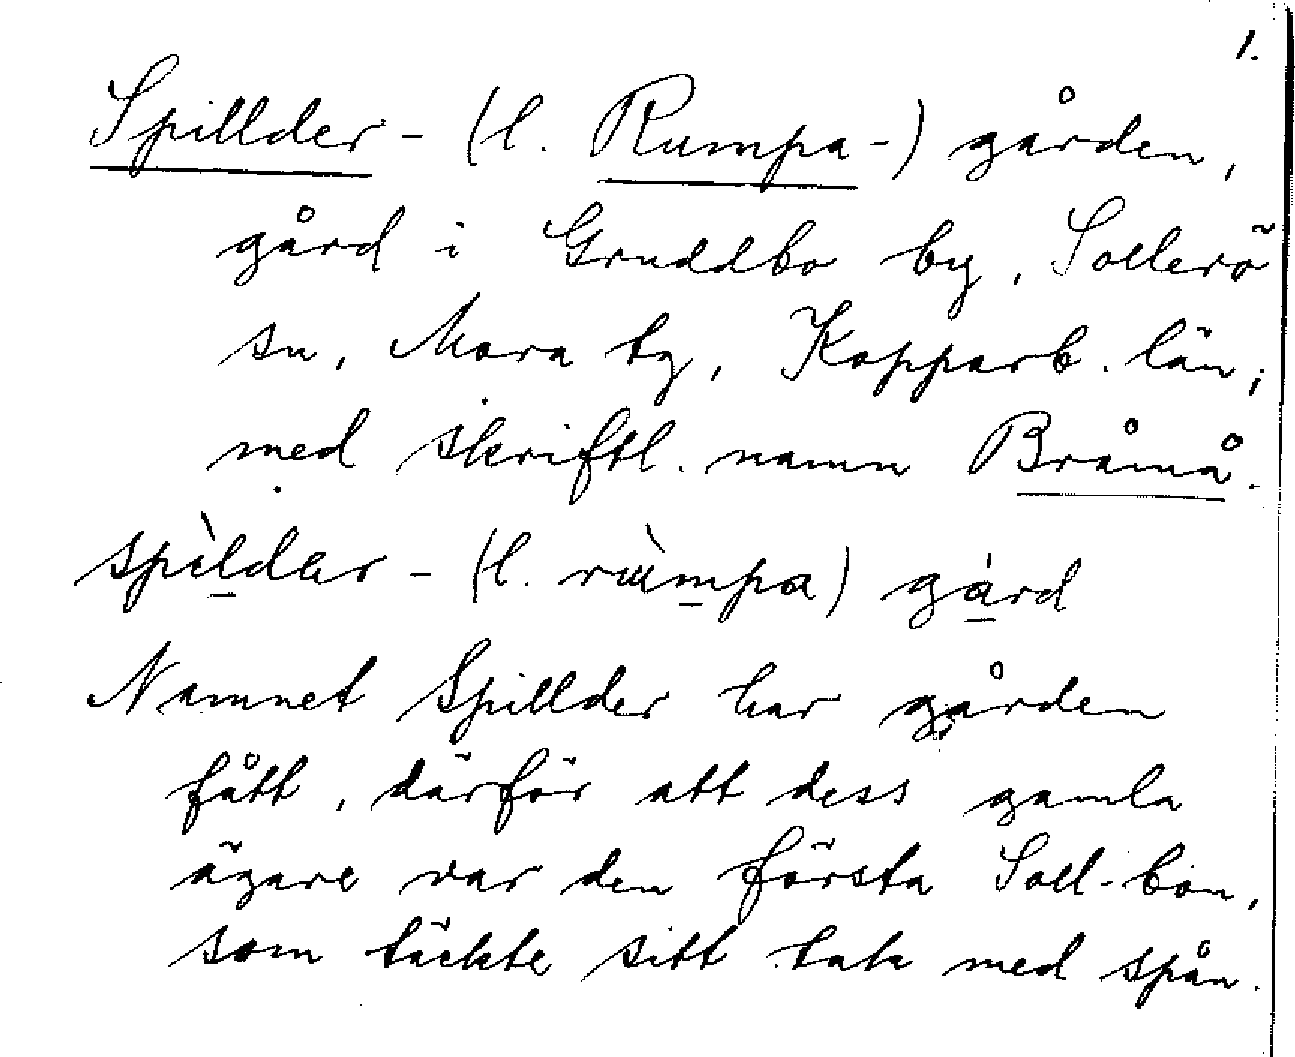 1.
Spillder- (l. Rumpa-) gården,
gård i Gruddbo by, Sollerö
sn, Mora tg, Kopparb. län;
med skriftl. namn Bråmå.
spìldär- (l. rùmpa) gård
Namnet Spillder har gården
fått, därför att dess gamla
ägare var den första Soll-bon,
som täckte sitt tak med spån.